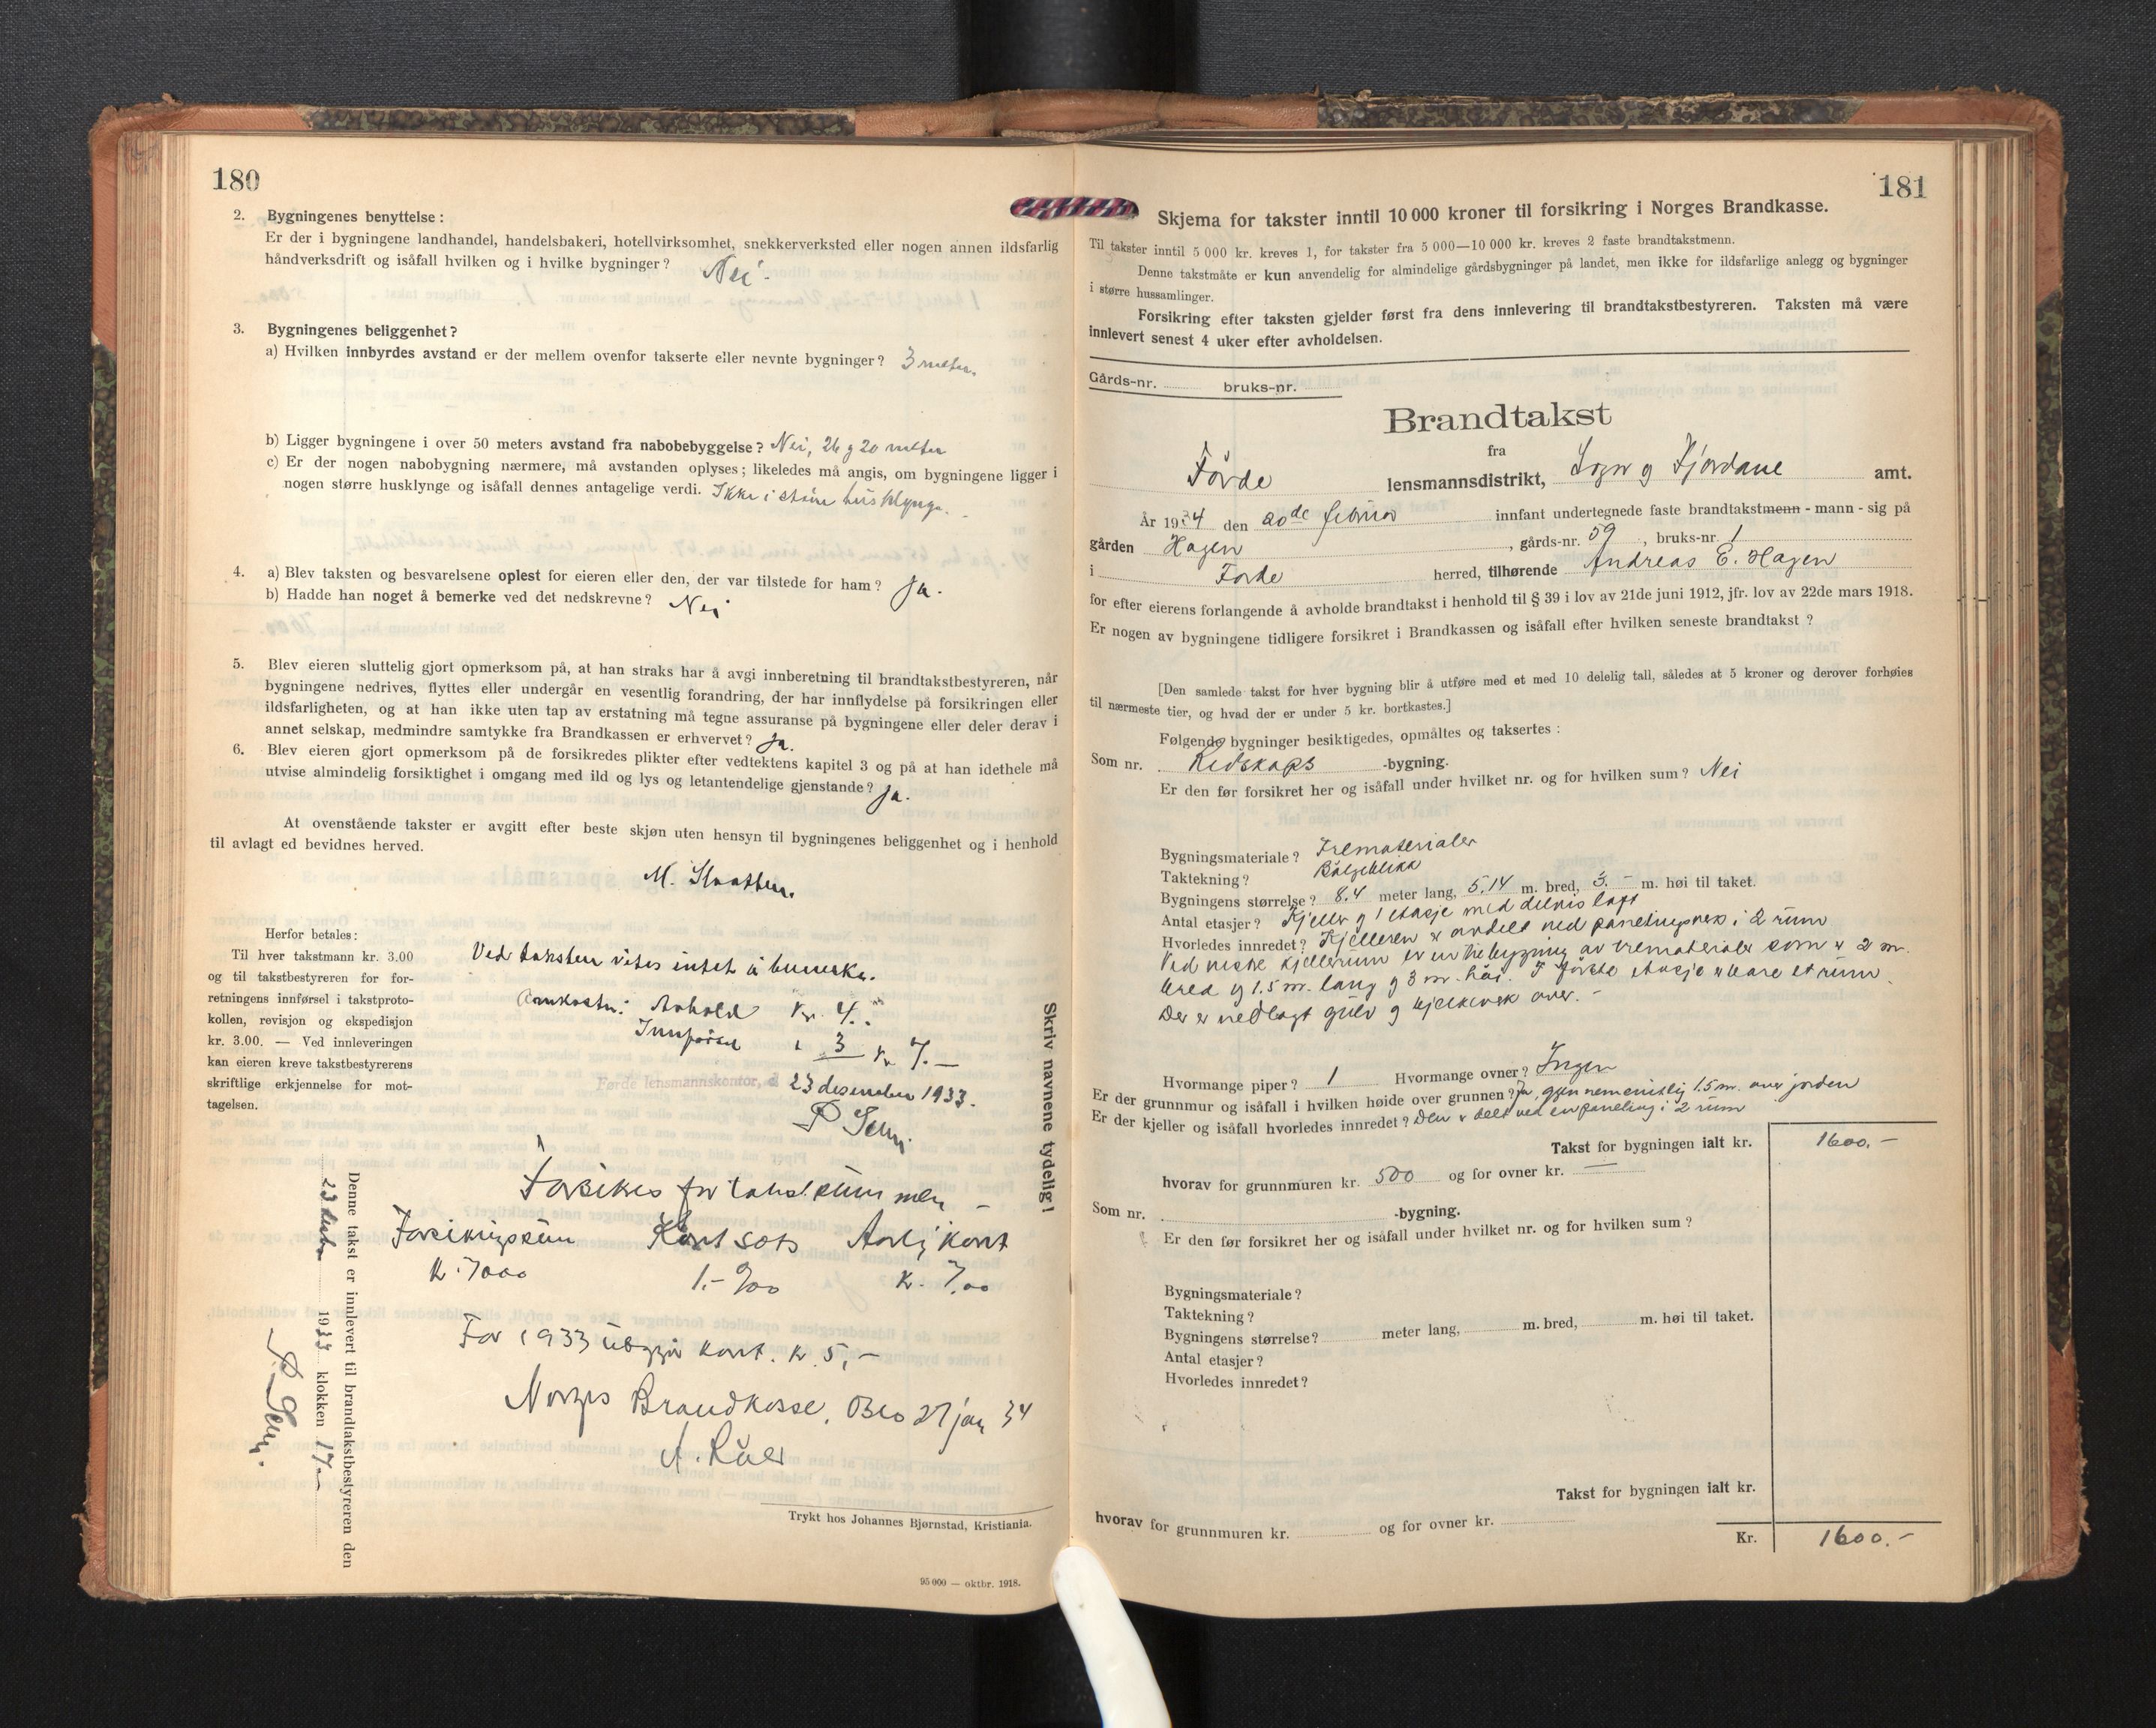 180
2. Bygningenes benyttelse:
Er der i bygningene landhandel, handelsbakeri, hotellvirksomhet, snekkerverksted eller nogen annen ildsfarlig
håndverksdrift og isåfall hvilken og i hvilke bygninger? Nei.
3. Bygningenes beliggenhet?
a) Hvilken innbyrdes avstand er der mellem ovenfor takserte eller nevnte bygninger? 3 meter.
b) Ligger bygningene i over 50 meters avstand fra nabobebyggelse? Nei, 26 g 20 meter
c) Er der nogen nabobygning nærmere, må avstanden oplyses; likeledes må angis, om bygningene ligger i
nogen større husklynge og isåfall dennes antagelige verdi. Ikke i større husklynge.
4. a) Blev taksten og besvarelsene oplest for eieren eller den, der var tilstede for ham? Ja.
b) Hadde han noget å bemerke ved det nedskrevne? Nei
5. Blev eieren sluttelig gjort opmerksom på, at han straks har å avgi innberetning til brandtakstbestyreren, når
bygningene nedrives, flyttes eller undergår en vesentlig forandring, der har innflydelse på forsikringen eller
ildsfarligheten, og at han ikke uten tap av erstatning må tegne assuranse på bygningene eller deler derav i
annet selskap, medmindre samtykke fra Brandkassen er erhvervet? Ja.
6. Blev eieren gjort opmerksom på de forsikredes plikter efter vedtektens kapitel 3 og på at han idethele må
utvise almindelig forsiktighet i omgang med ild og lys og letantendelige gjenstande? Ja.
At ovenstående takster er avgitt efter beste skjøn uten hensyn til bygningenes beliggenhet og i henhold
til avlagt ed bevidnes herved.
Herfor betales:
Til hver takstmann kr. 3.00
og til takstbestyreren for for-
retningens innførsel i takstproto-
kollen, revisjon og ekspedisjon
kr. 3.00. — Ved innleveringen
kan eieren kreve takstbestyrerens
skriftlige erkjennelse for mot-
tagelsen.
Ved taksten vites intet å bemerke.
Omkostn: Avhold kr. 4.
Innførsel " 3 kr 7.—
Førde lensmannskontor, d. 23 desember 1933.
Forsikres for takstsummen
Forsikringssum Kont sats Aarlig kont
kr. 7000 1.- ‰ kr. 7,00
For 1933 utgjør kont. kr. 5,-
Norges Brandkasse, Oslo 27 jan 34
Denne takst er innlevert til brandtakstbestyreren den
23 desbr 1933 klokken 17
Skriv navnene tydelig!
Trykt hos Johannes Bjørnstad, Kristiania.
95 000 — oktbr. 1918.
181
Skjema for takster inntil 10 000 kroner til forsikring i Norges Brandkasse.
Til takster inntil 5 000 kr. kreves 1, for takster fra 5 000—10 000 kr. kreves 2 faste brandtakstmenn.
Denne takstmåte er kun anvendelig for almindelige gårdsbygninger på landet, men ikke for ildsfarlige anlegg og bygninger
i større hussamlinger.
Forsikring efter taksten gjelder først fra dens innlevering til brandtakstbestyreren. Taksten må være
innlevert senest 4 uker efter avholdelsen.
Gårds-nr. bruks-nr.
Brandtakst
fra
Førde lensmannsdistrikt, Sogn g Fjordane amt.
År 1934 den 20de februar innfant undertegnede faste brandtakstmenn - mann - sig på
gården Hagen, gårds-nr. 59, bruks-nr. 1
i Førde herred, tilhørende Andreas E. Hagen
for efter eierens forlangende å avholde brandtakst i henhold til § 39 i lov av 21de juni 1912, jfr. lov av 22de mars 1918.
Er nogen av bygningene tidligere forsikret i Brandkassen og isåfall efter hvilken seneste brandtakst?
[Den samlede takst for hver bygning blir å utføre med et med 10 delelig tall, således at 5 kroner og derover forhøies
til nærmeste tier, og hvad der er under 5 kr. bortkastes.]
Følgende bygninger besiktigedes, opmåltes og taksertes:
Som nr. Redskaps -bygning.
Er den før forsikret her og isåfall under hvilket nr. og for hvilken sum? Nei
Bygningsmateriale? Trematerialer
Taktekning? Bølgeblikk
Bygningens størrelse? 8.4 meter lang, 5,14 m. bred, 3.- m. høi til taket.
Antal etasjer? Kjeller g 1 etasje med delvis loft
Hvorledes innredet? Kjelleren er avdelt ved panelingsverk i 2 rum
Ved nedre kjellerum er en tilbygging av trematerialer som er 2 m.
bred g 1.5 m. lang g 3 m. høi. I første etasje er bare et rum
Der er nedlagt gulv g bjelkeverk over. -
Hvormange piper? 1 Hvormange ovner? Ingen
Er der grunnmur og isåfall i hvilken høide over grunnen? Ja, gjennemsnitlig 1.5 m. over jorden
Er der kjeller og isåfall hvorledes innredet? Den er delt ved en paneling i 2 rum
Takst for bygningen ialt kr. 1600,-
hvorav for grunnmuren kr. 500 og for ovner kr. —
Som nr. -bygning.
Er den før forsikret her og isåfall under hvilket nr. og for hvilken sum?
Bygningsmateriale?
Taktekning?
Bygningens størrelse? meter lang, m. bred, m. høi til taket.
Antal etasjer?
Hvorledes innredet?
Takst for bygningen ialt kr.
hvorav for grunnmuren kr. og for ovner kr.
Kr. 1600.-